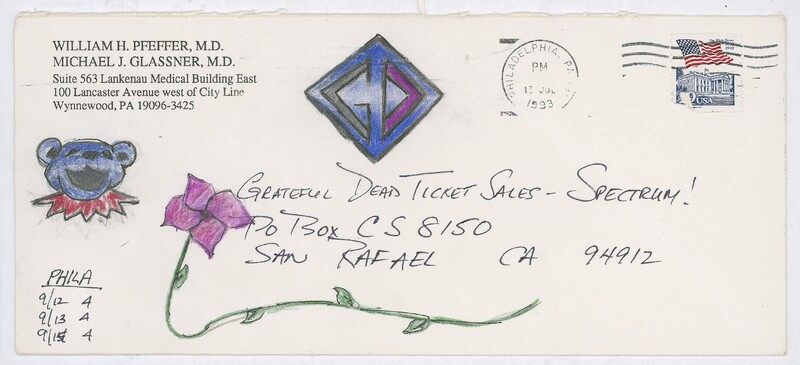 WILLIAM H. PFEFFER, M.D.
MICHAEL J. GLASSNER, M.D.
Suite 563 Lankenau Medical Building East
100 Lancaster Avenue west of City Line
Wynnewood, PA 19096-3425
GD
PHILADELPHIA, PA
PM
JUL
1993
USA
GRATEFUL DEAD TICKET SALES - SPECTRUM!
PO BOX CS 8150
SAN RAFAEL CA 94912
PHILA
9/12 4
9/13 4
4